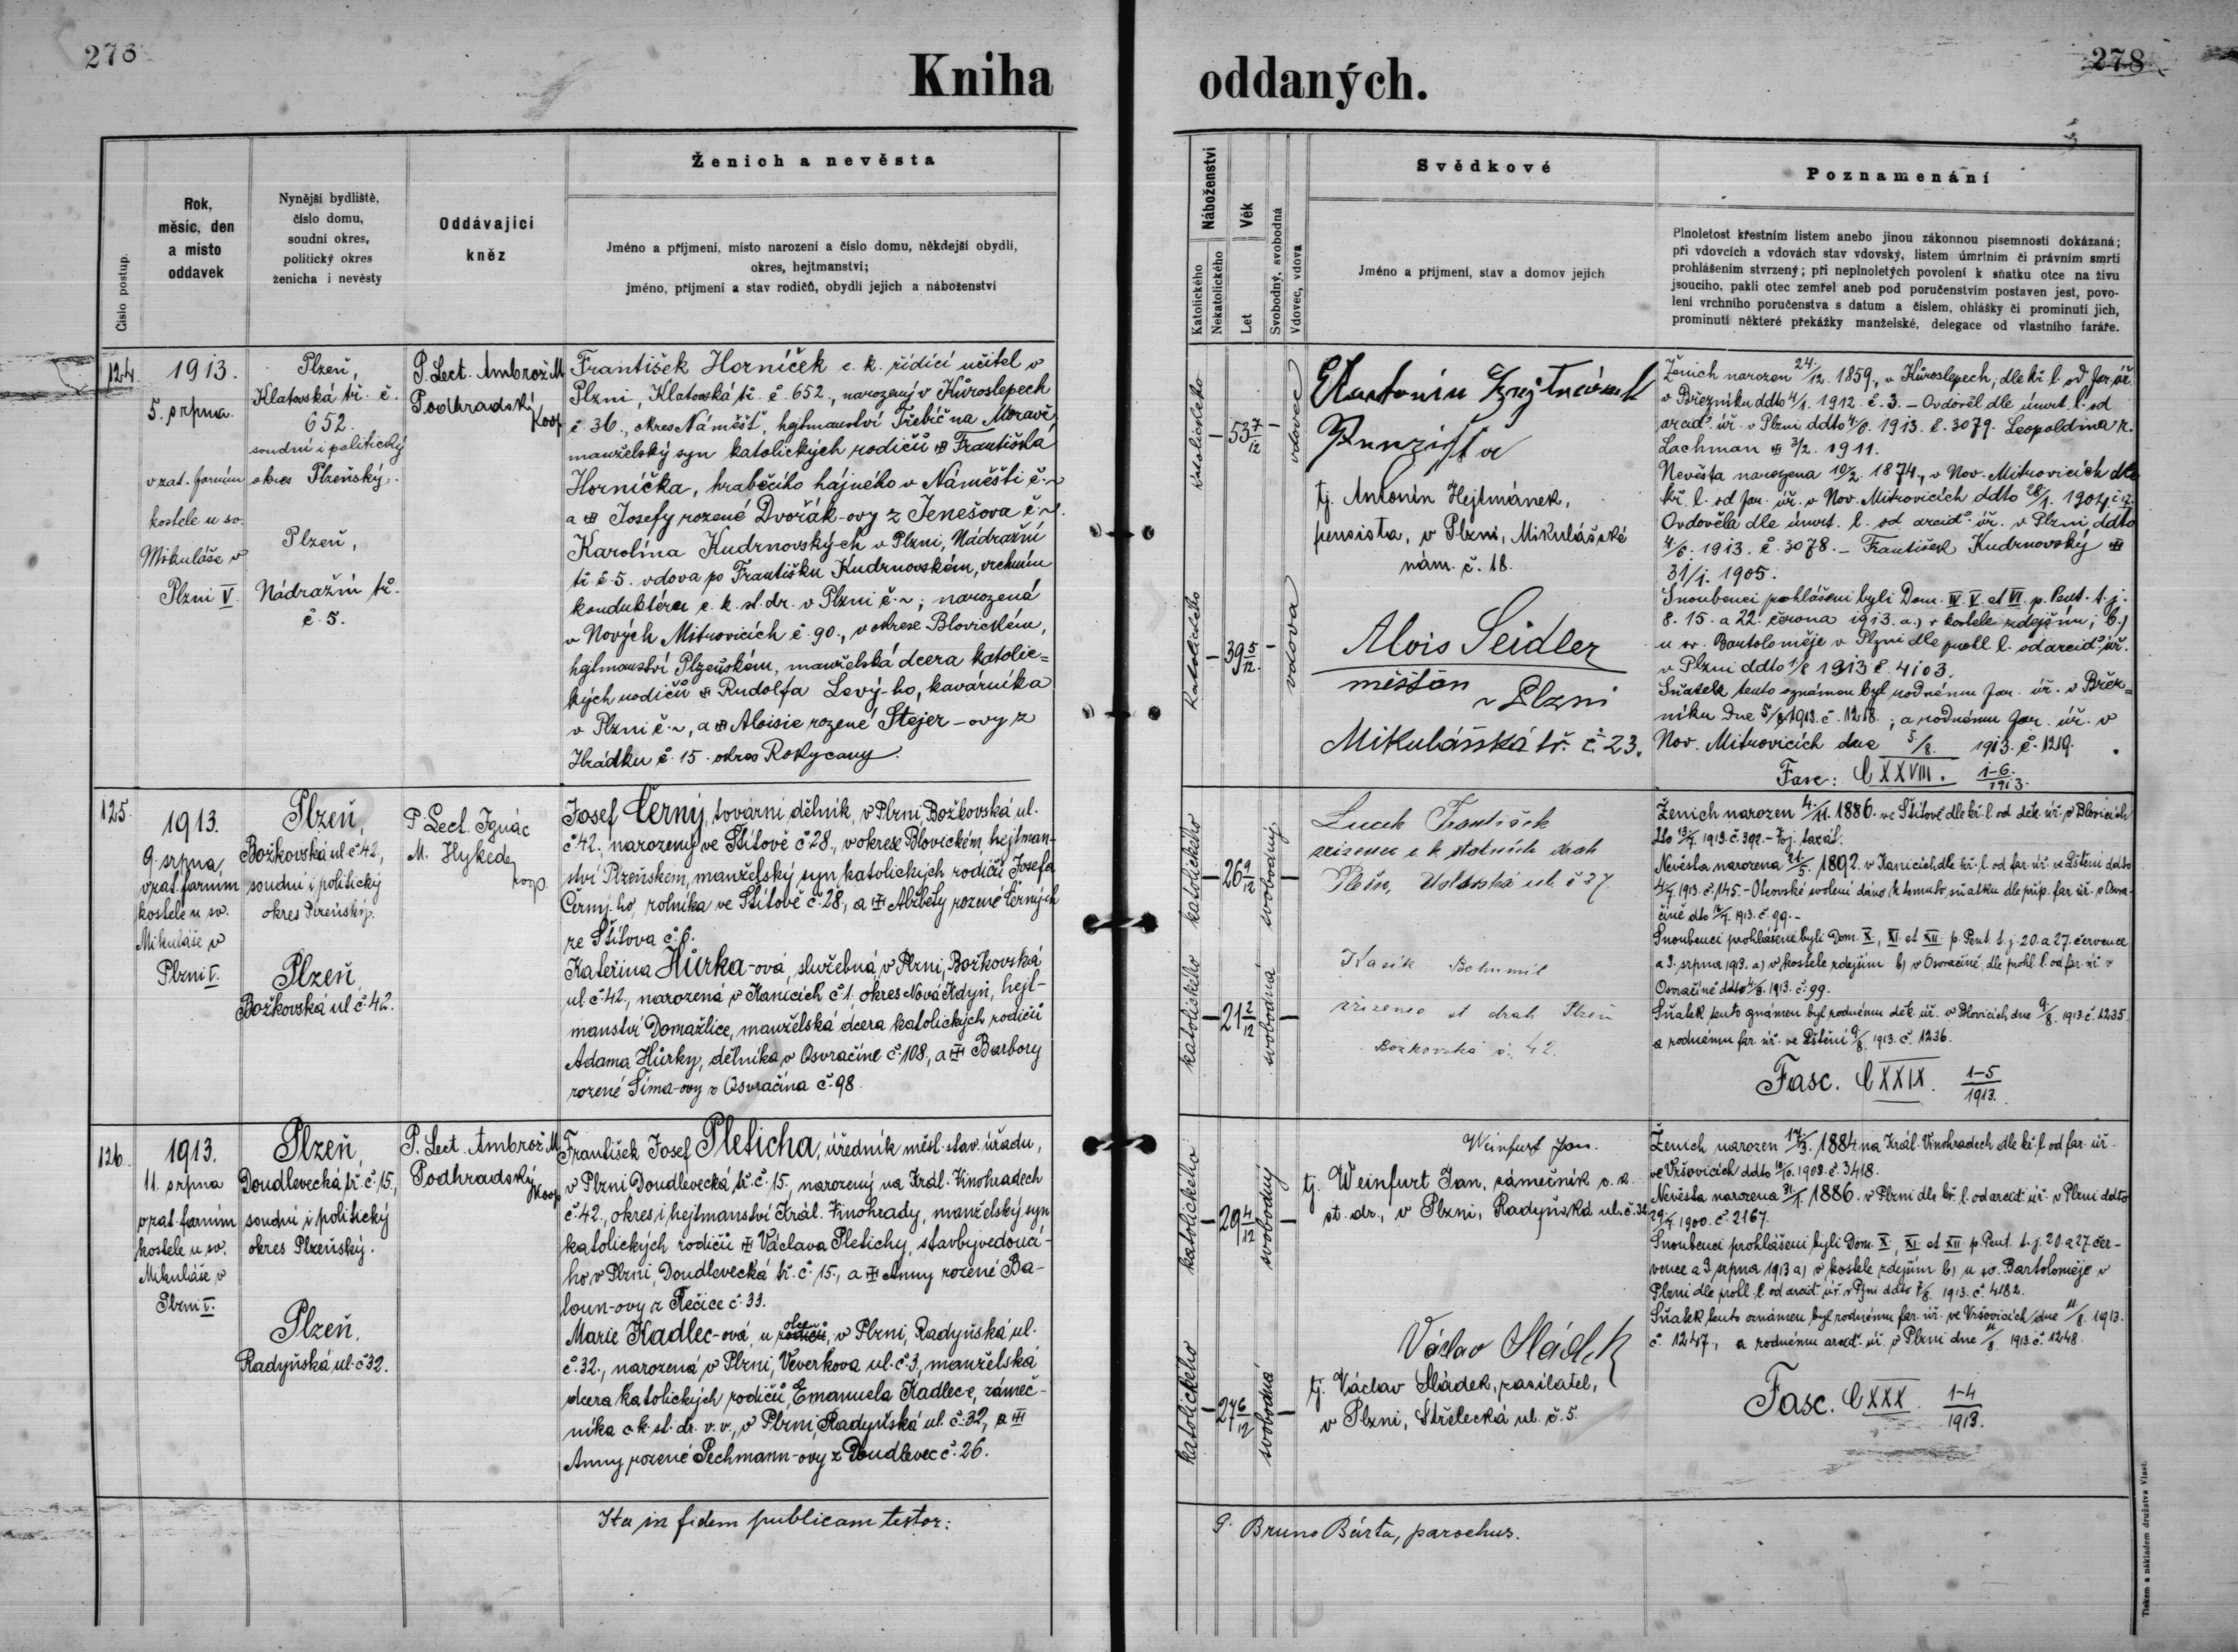 278
Kniha oddaných.
278
Číslo postup.
Rok,
měsíc, den
a místo
oddavek
Nynější bydliště,
číslo domu,
soudní okres,
politický okres
ženicha i nevěsty
Oddávající
kněz
Ženich a nevěsta
Jméno a příjmení, místo narození a číslo domu, někdejší obydlí,
okres, hejtmanství;
jméno, příjmení a stav rodičů, obydlí jejich a náboženství
Náboženství
Katolického
Nekatolického
Věk
Let
Svobodný, svobodná
Vdovec, vdova
Svědkové
Jméno a příjmení, stav a domov jejich
Poznamenání
Plnoletost křestním listem anebo jinou zákonnou písemností dokázaná;
při vdovcích a vdovách stav vdovský, listem úmrtním či právním smrti
prohlášením stvrzený; při neplnoletých povolení k sňatku otce na živu
jsoucího, pakli otec zemřel aneb pod poručenstvím postaven jest, povo-
lení vrchního poručenstva s datum a číslem, ohlášky či prominutí jich,
prominutí některé překážky manželské, delegace od vlastního faráře.
124.
1913.
5. srpna
v zat. farním
kostele u sv.
Mikuláše v
Plzni V.
Plzeň,
Klatovská tř. č.
652.
soudní i politický
okres Plzeňský.
Plzeň,
Nádražní tř.
č. 5.
P. Lect. Ambrož M
Podhradský
Koop
František Horníček c. k. řídící učitel v
Plzni, Klatovská tř. č. 652., narozený v Kůroslepech
č 36., okres Náměšť, hejtmanství Třebíč na Moravě
manželský syn katolických rodičů Františka
Horníčka, hraběcího hajného v Náměšti č. ~
a Josefy rozené Dvořák-ovy z Jenešova č ~.
Karolína Kudrnovský-ch v Plzni, Nádražní
tř. č. 5. vdova po Františku Kudrnovském, vrchním
konduktéru c. k. st. dr. v Plzni č. ~; narozená
v Nových Mitrovicích č. 90., v okrese Blovickém,
hejtmanství Plzeňském, manželská dcera katolic=
kých rodičů Rudolfa Levý-ho, kavárníka
v Plzni č. ~, a Aloisie rozené Stejer-ovy z
Hrádku č. 15. okres Rokycany.
katolického
53 7/12
vdovec
katolického
39 5/12
vdova
Antonín Hejtmánek
Penzista
tj. Antonín Hejtmánek,
pensista, v Plzni, Mikulášské
nám. č. 18.
Alois Seidler
měšťan
v Plzni
Mikulášská tř. č. 23.
Ženich narozen 24./12. 1859., v Kůroslepech, dle kř. l. od far. úř.
v Březníku ddto 4/1. 1912. č. 3. — Ovdověl dle úmrt. l. od
arcid. úř. v Plzni ddto 4/6. 1913. č. 3079. Leopoldina r.
Lachman 3/2. 1911.
Nevěsta narozena 10/2. 1874., v Nov. Mitrovicích dle
kř. l. od far. úř. v Nov. Mitrovicích ddto 28/1. 1904
Ovdověla dle úmrt. l. od arcid. úř. v Plzni ddto
4/6. 1913. č. 3078. — František Kudrnovský
31/1. 1905.
Snoubenci prohlášeni byli Dom. IV. V. et VI. p. Pent. t. j.
8. 15. a 22. června 1913. a.) v kostele zdejším; b.)
u sv. Bartoloměje v Plzni dle prohl. l. od arcid. úř.
v Plzni ddto 1/8 1913 č. 4103.
Sňatek tento oznámen byl rodnému far. úř. v Břez=
níku dne 5/8 1913. č. 1218.; a rodnému far. úř. v
Nov. Mitrovicích dne 5./8. 1913. č. 1219.
Fasc: CXXVIII. 1-6./1913.
125.
1913.
9. srpna,
v zat. farním
kostele u sv.
Mikuláše v
Plzni V.
Plzeň,
Božkovská ul. č 42,
soudní i politický
okres Plzeňský.
Plzeň,
Božkovská ul. č 42.
P. Lect. Ignác
M. Hykeda
koop.
Josef Černý, tovární dělník, v Plzni, Božkovská ul.
č 42., narozený ve Štítově č 28., v okrese Blovickém, hejtman-
ství Plzeňském, manželský syn katolických rodičů Josefa
Černý-ho, rolníka ve Štítově č. 28., a Alžběty rozené Černých
ze Štítova č. 6.
Kateřina Hůrka-ová, služebná, v Plzni, Božkovská
ul č 42., narozená v Kanicích č 1. okres Nová Kdyň, hejt-
manství Domažlice, manželská dcera katolických rodičů
Adama Hůrky, dělníka, v Osvračíně č. 108., a Barbory
rozené Šíma-ovy z Osvračína č. 98.
katolického
26 9/12
svobodný
katolického
21 2/12
svobodná
Lucek František
zřízenec c. k. státních drah
Plzeň, ul. č 27.
Kasík Bohumil
zřízenec st. drah Plzeň
Božkovská č. 42.
Ženich narozen 4./11. 1886. ve Štítově dle kř. l. od děk. úř. v Blovicích
dto 13/7. 1913. č. 392.
Nevěsta narozena 21/5. 1892. v Kanicích, dle kř. l. od far. úř. ve Lštění ddto
4/7. 1913. č. 145. – Otcovské svolení dáno k tomuto sňatku dle příp. far. úř. v Osvra-
číně dto 16/7. 1913. č. 99. –
Snoubenci prohlášeni byli Dom. X., XI. et XII. p. Pent. t. j. 20. a 27. července
a 3. srpna 1913. a) v kostele zdejším b) v Osvračíně, dle prohl. l. od far. úř. v
Osvračíně ddto 4/8. 1913. č. 99.
Sňatek tento oznámen byl rodnému děk. úř. v Blovicích, dne 9./8. 1913. č. 1235
a rodnému far. úř. ve Lštění 9/8. 1913. č. 1236.
Fasc. CXXIX. 1-5/1913.
126.
1913.
11. srpna
v zat. farním
kostele u sv.
Mikuláše v
Plzni V.
Plzeň,
Doudlevecká tř. č. 15,
soudní i politický
okres Plzeňský.
Plzeň,
Radyňská ul. č 32.
P. Lect. Ambrož M
Podhradský
Koop
František Josef Pleticha, úředník měst. stav. úřadu,
v Plzni Doudlevecká tř. č. 15., narozený na Král. Vinohradech
č. 42., okres i hejtmanství Král. Vinohrady, manželský syn
katolických rodičů Václava Pletichy, stavbyvedoucí-
ho v Plzni, Doudlevecká tř. č. 15., a Anny rozené Ba-
loun-ovy z Řečice č. 33.
Marie Kadlec-ová, u rodičů otce, v Plzni, Radyňská ul.
č. 32., narozená v Plzni, Veverkova ul. č. 3, manželská
dcera katolických rodičů, Emanuela Kadlece, zámeč-
níka c. k. st. dr. v. v., v Plzni, Radyňská ul. č. 32, a
Anny rozené Pechmann-ovy z Doudlevec č. 26.
katolického
29 4/12
svobodný
katolického
27 6/12
svobodná
Weinfurt Jan.
tj. Weinfurt Jan, zámečník c. k.
st. dr., v Plzni, Radyňská ul. č. 32
Václav Sládek
tj. Václav Sládek, zasílatel,
v Plzni, Střelecká ul. č. 5.
Ženich narozen 17/3. 1884 na Král. Vinohradech dle kř. l. od far. úř.
ve Vršovicích ddto 10/6. 1908. č. 3418.
Nevěsta narozena 31/1. 1886. v Plzni dle kř. l. od arcid. úř. v Plzni ddto
29/7. 1900. č. 2167.
Snoubenci prohlášeni byli Dom. X., XI. et XII. p. Pent. t. j. 20. a 27. čer-
vence a 3. srpna 1913 a) v kostele zdejším b) u sv. Bartoloměje v
Plzni dle prohl. l. od arcid. úř. v Plzni ddto 7/8. 1913. č. 4182.
Sňatek tento oznámen byl rodnému far. úř. ve Vršovicích, dne 11/8. 1913.
č. 1247., a rodnému arcid. úř. v Plzni dne 11/8. 1913. č. 1248.
Fasc. CXXX. 1-4/1913.
Ita in fidem publicam testor:
P. Bruno Bárta, parochus.
Tiskem a nákladem družstva Vlast.